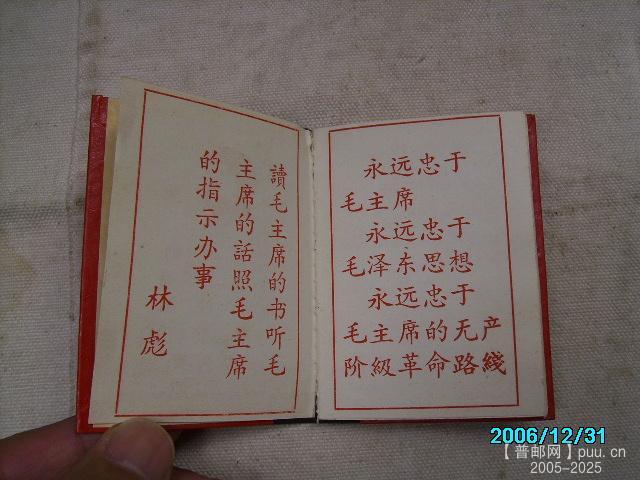 讀毛主席的书听毛
主席的話照毛主席
的指示办事
林彪
永远忠于
毛主席
永远忠于
毛泽东思想
永远忠于
毛主席的无产
阶級革命路綫
2006/12/31
【普邮网】puu.cn
2005-2025